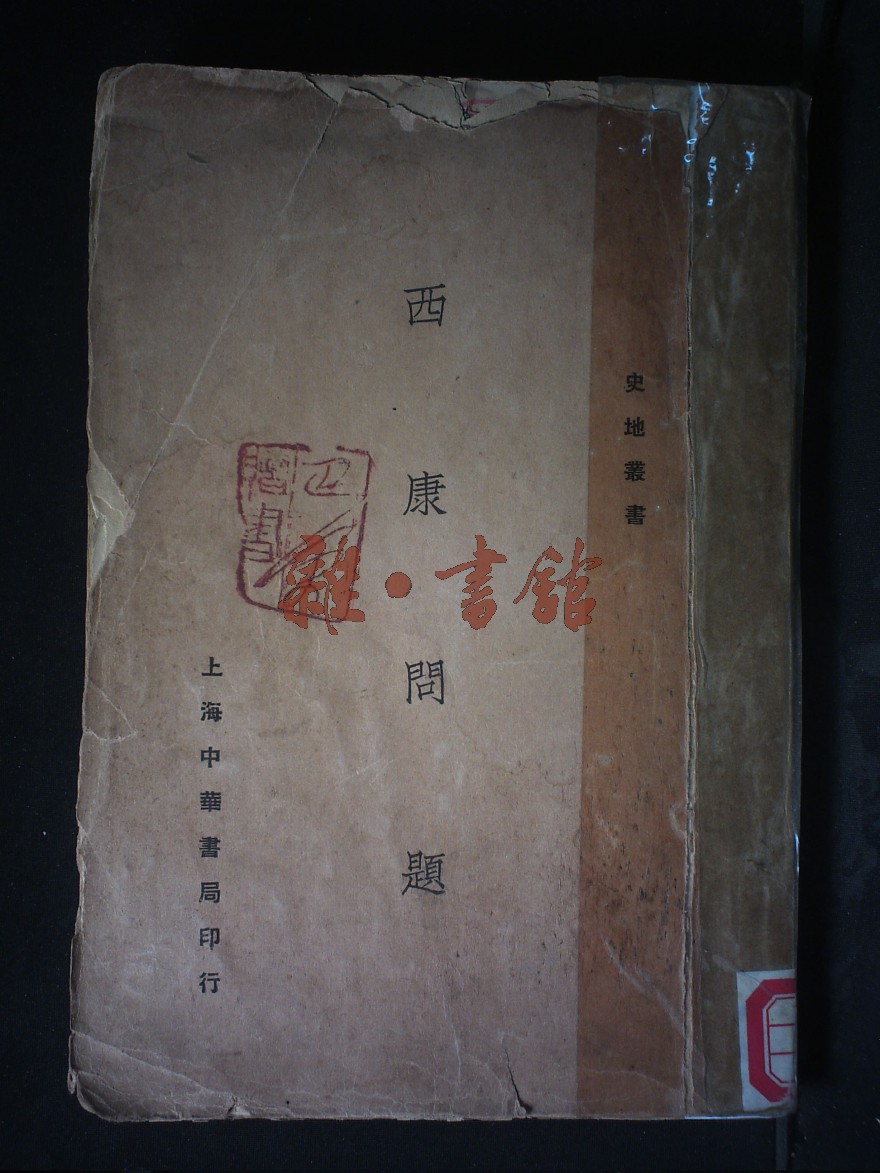 史地叢書
西康問題
上海中華書局印行
雜·書館
書